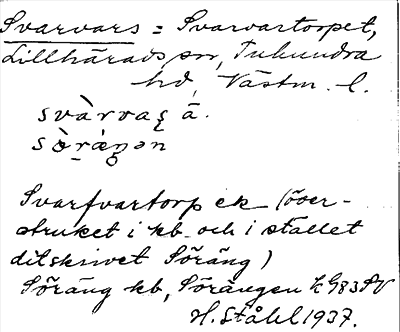 Svarvars = Svarvartorpet,
Lillhärads sn, Tuhundra
hd, Västm. l.
svàrvaʂ ā.
sò̤ràŋən
Svarfvartorp ek (över-
struket i kb och i stället
ditskrivet Söräng)
Söräng kb, Sörängen k G83 SV
H. Ståhl 1937.